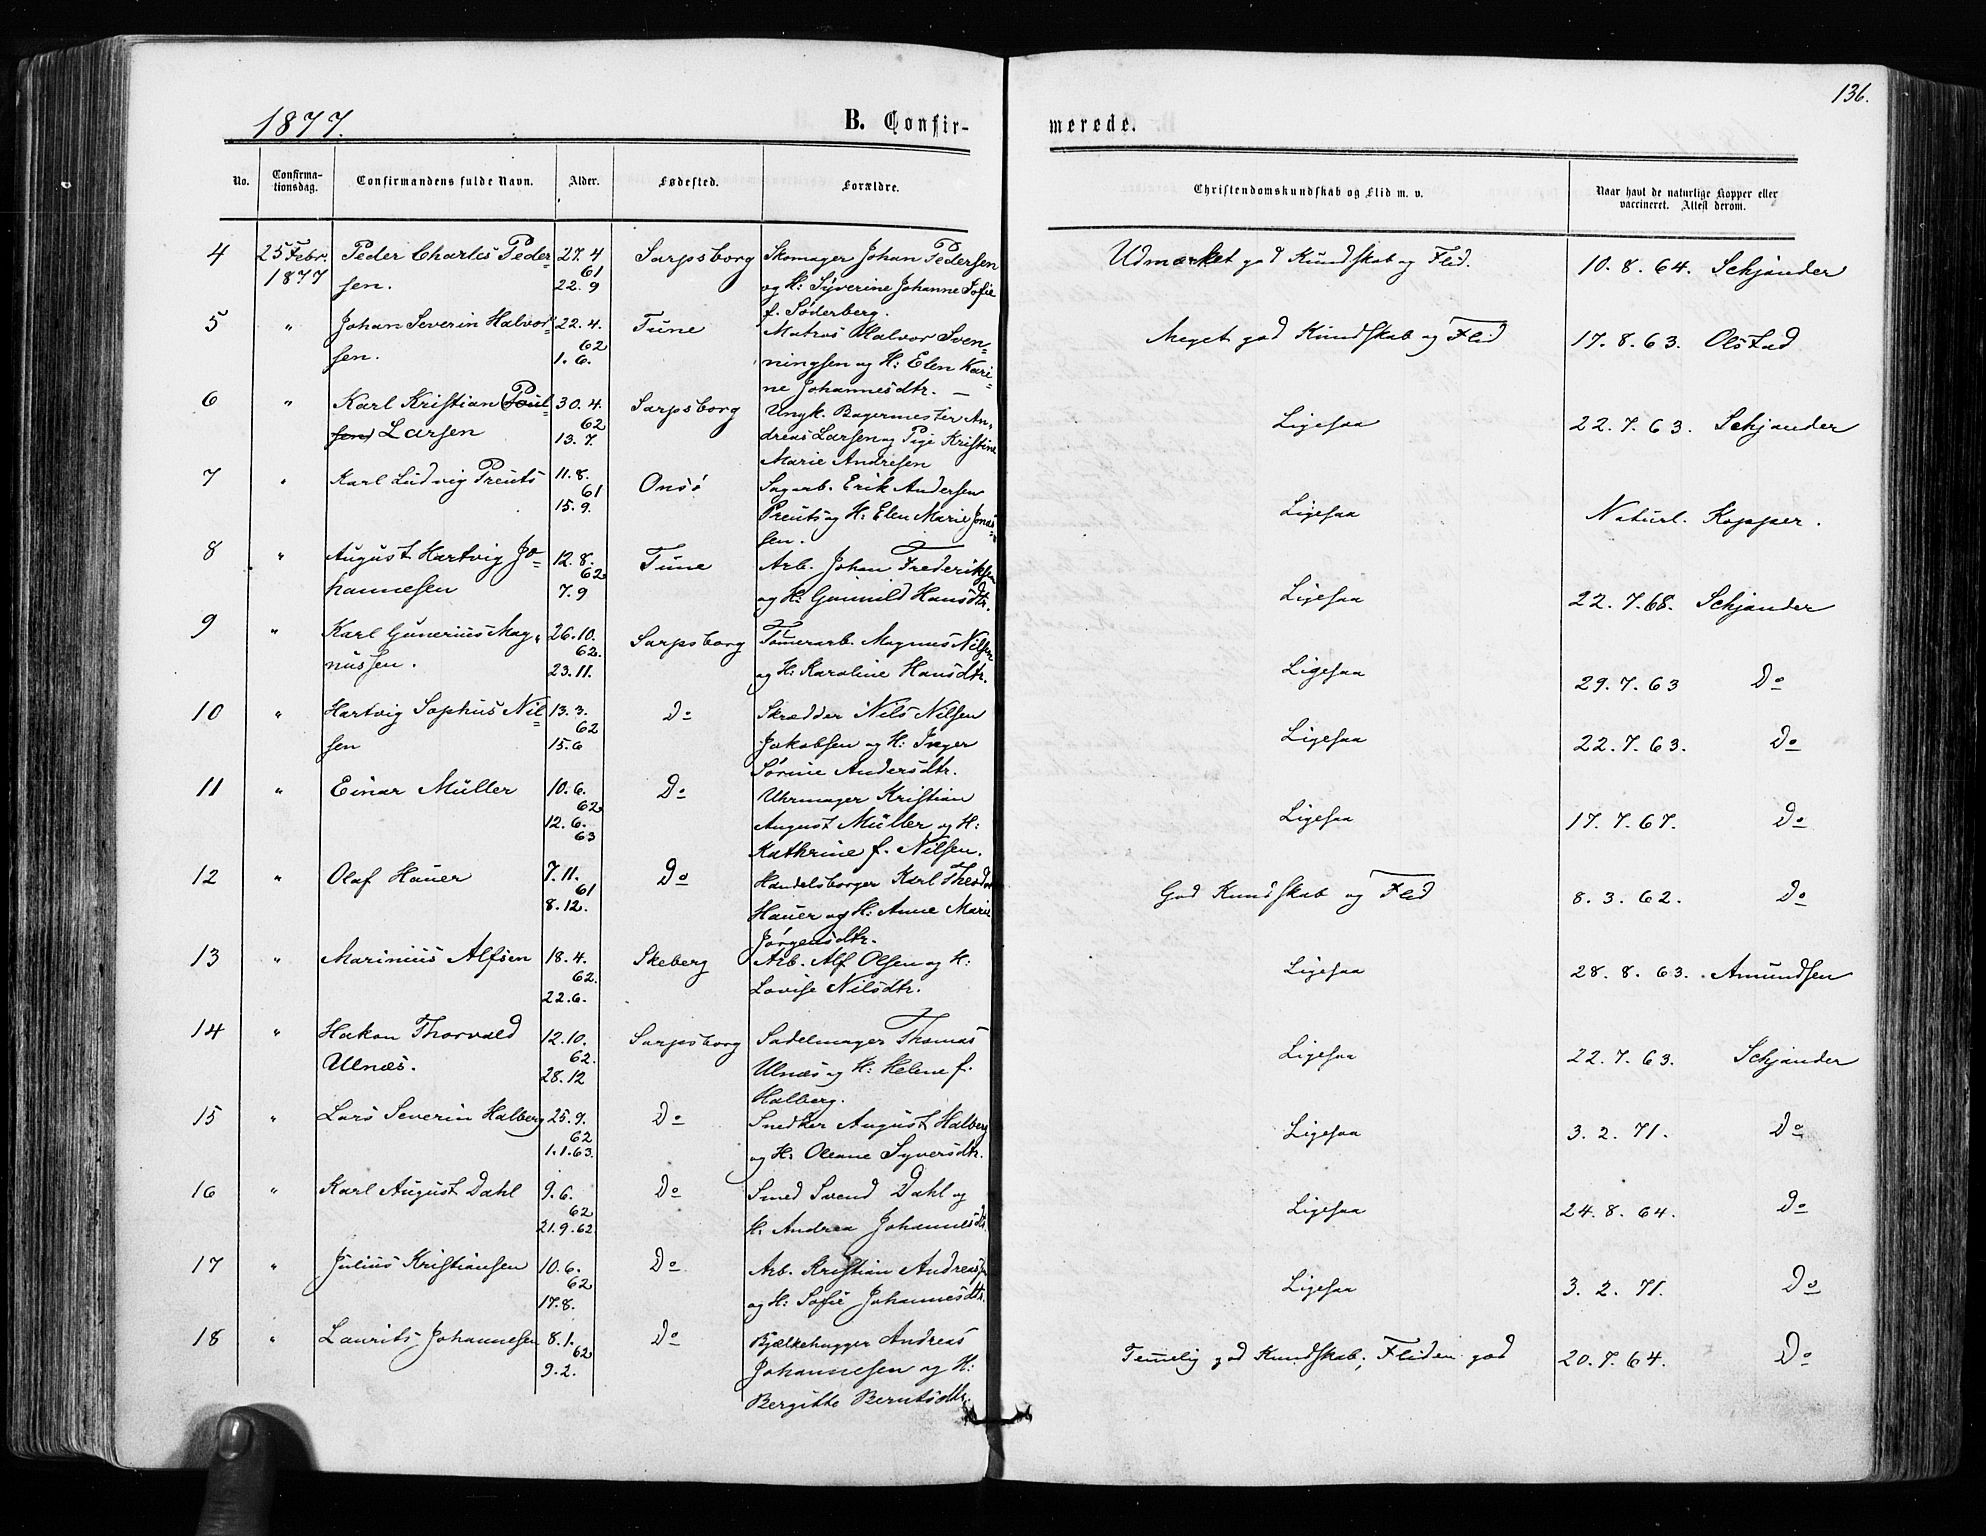 136.
1877. B. Confir- merede.
No. Confirma-tionsdag. Confirmandens fulde Navn. Alder. Fødested. Forældre. Christendomskundskab og Flid m. v. Naar havt de naturlige Kopper eller vaccineret. Attest derom.
4 25 Febr. Peder Charles Peder- 27. 4 Sarpsborg Skomager Johan Pedersen Udmærket god Kundskab og Flid. 10. 8. 64. Schjander
1877 sen. 61 og H: Syverine Johanne Sofie
22. 9 f. Søderberg.
5 " Johan Severin Halvor- 22. 4. Tune Matros Halvor Sven- Meget god Kundskab og Flid 17. 8. 63. Olstad
sen. 62 ningsen og H: Elen Kari-
1. 6. ne Johannesdtr. —
6 " Karl Kristian (Poul- 30. 4. Sarpsborg Ungk. Bagermester An- Ligesaa 22. 7. 63. Schjander
sen) Larsen 62 dreas Larsen og Pige Kristine
13. 7. Marie Andresen
7 " Karl Ludvig Preuts 11. 8. Onsø Sagarb. Erik Andersen Ligesaa Naturl. Kopper.
61 Preuts og H: Elen Marie Jonas-
15. 9. sen.
8 " August Hartvig Jo- 12. 8. Tune Arb. Johan Frederiksen Ligesaa 22. 7. 68. Schjander
hannesen 62 og H: Gunnild Hansdtr.
7. 9
9 " Karl Gunerius Mag- 26. 10. Sarpsborg Tømerarb. Magnus Nilsen Ligesaa 29. 7. 63 Do
nussen. 62. og H: Karoline Hansdtr.
23. 11.
10 " Hartvig Sophus Nil- 13. 3. Do Skrædder Nils Nilsen Ligesaa 22. 7. 63. Do
sen 62 Jakobsen og H: Inger
15. 6 Sørine Andersdtr.
11 " Einar Müller 10. 6. Do Uhrmager Kristian Ligesaa 17. 7. 67. Do
62 August Müller og H:
12. 6. Kathrine f. Nilsen.
63
12 " Olaf Hauer 7. 11. Do Handelsborger Karl Theodor God Kundskab og Flid 8. 3. 62. Do
61 Hauer og H: Anne Marie
8. 12. Jørgensdtr.
13 " Marinius Alfsen 18. 4. Skeberg Arb. Alf Olsen og H: Ligesaa 28. 8. 63. Amundsen
62. Lovise Nilsdtr.
22. 6.
14 " Hakon Thorvald 12. 10. Sarpsborg Sadelmager Thomas Ligesaa 22. 7. 63. Schjander
Ulnæs. 62. Ulnæs og H: Helene f.
28. 12 Halberg.
15 " Lars Severin Halberg 25. 9. Do Snedker August Halberg Ligesaa 3. 2. 71. Do
62 og H: Oleane Syversdtr.
1. 1. 63.
16 " Karl August Dahl 9. 6. Do Smed Svend Dahl og Ligesaa 24. 8. 64. Do
62 H: Andrea Johannesdtr.
21. 9. 62
17 " Julius Kristiansen 10. 6. Do Arb. Kristian Andreassen Ligesaa 3. 2. 71. Do
62 og H: Sofie Johannesdtr.
17. 8.
18 " Laurits Johannesen 8. 1. Do Bjælkehugger Andreas Temelig god Kundskab; Fliden god 20. 7. 64. Do
62 Johannesen og H:
9. 2. Bergitte Berntsdtr.